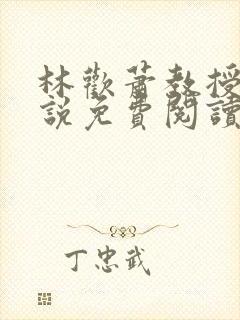 林歡蕭教授
說免費閱讀
丁忠武